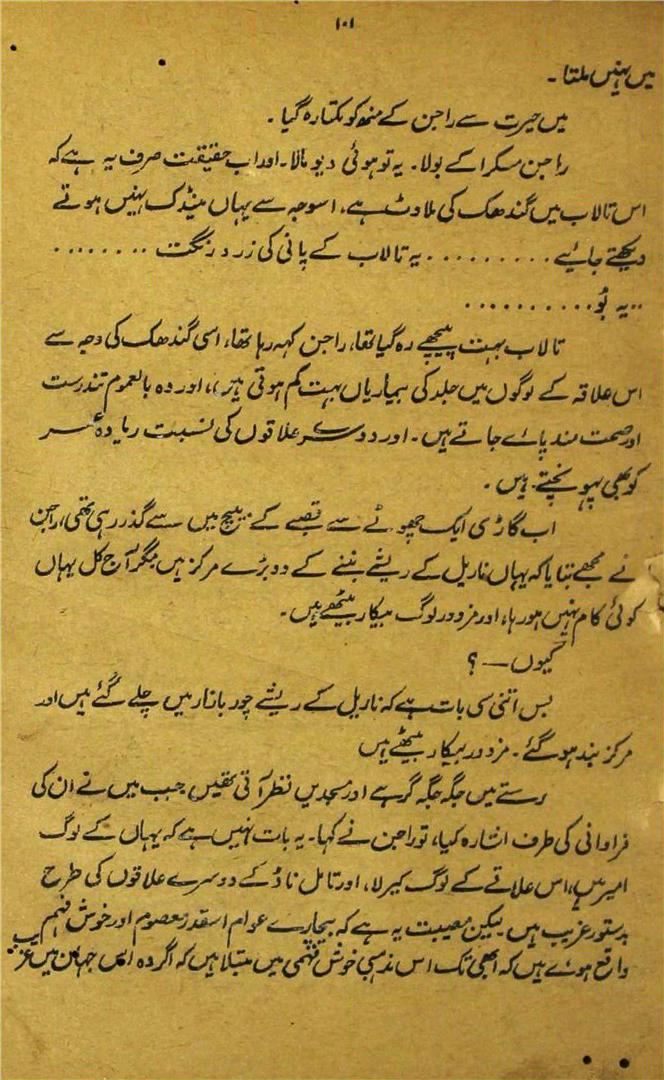 ۱۰۱
میں نہیں ملتا۔
میں حیرت سے راجن کے منھ کو تکتا رہ گیا۔
راجن مسکرا کے بولا۔ یہ تو ہوئی دیو مالا۔ اور اب حقیقت صرف یہ ہے کہ
اس تالاب میں گندھک کی ملاوٹ ہے، اسوجہ سے یہاں مینڈک نہیں ہوتے
دیکھتے جائیے . . . . . . . . . یہ تالاب کے پانی کی زرد رنگت . . . . . . . .
. . یہ بُو . . . . . . . . . .
تالاب بہت پیچھے رہ گیا تھا، راجن کہہ رہا تھا، اسی گندھک کی وجہ سے
اس علاقہ کے لوگوں میں جلد کی بیماریاں بہت کم ہوتی ہیں، اور وہ بالعموم تندرست
اور صحت مند پائے جاتے ہیں۔ اور دوسرے علاقوں کی نسبت زیادہ عمر
کو بھی پہونچتے ہیں۔
اب گاڑی ایک چھوٹے سے قصبے کے بیچ میں سے گذر رہی تھی، راجن
نے مجھے بتایا کہ یہاں ناریل کے ریشے بننے کے دو بڑے مرکز ہیں مگر آج کل یہاں
کوئی کام نہیں ہو رہا، اور مزدور لوگ بیکار بیٹھے ہیں۔
کیوں — ؟
بس اتنی سی بات ہے کہ ناریل کے ریشے چور بازار میں چلے گئے ہیں اور
مرکز بند ہو گئے۔ مزدور بیکار بیٹھے ہیں
رستے میں جگہ جگہ گرجے اور مسجدیں نظر آتی تھیں جب میں نے ان کی
فراوانی کی طرف اشارہ کیا، تو راجن نے کہا۔ یہ بات نہیں ہے کہ یہاں کے لوگ
امیر ہیں، اس علاقے کے لوگ کیرلا، اور تامل ناڈ کے دوسرے علاقوں کی طرح
بدستور غریب ہیں لیکن مصیبت یہ ہے کہ بیچارے عوام اسقدر معصوم اور خوش فہم
واقع ہوئے ہیں کہ ابھی تک اس مذہبی خوش فہمی میں مبتلا ہیں کہ اگر وہ اس جہان میں غریب